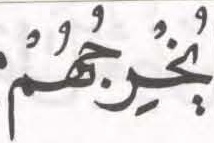 يُخْرِجُهُمْ